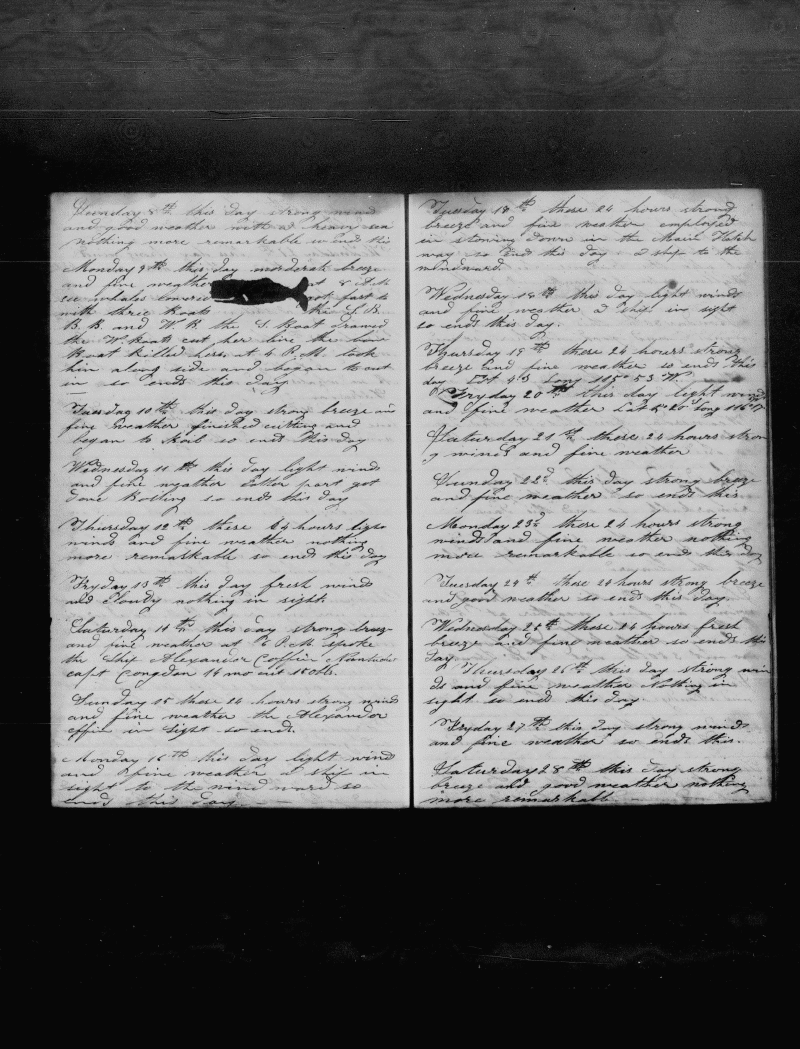 Sunday 8th this day strong wind
and good weather with a heavy sea
nothing more remarkable so ends this
Monday 9th this day moderate breeze
and fine weather at 8 A.M.
see whales lowered got fast to
with three Boats the L. B.
B. B. and W B the S Boat drawed
the W Boats cut her line the bow
Boat killed hers at 4 P.M. took
him along side and began to cut
in so ends this day
Tuesday 10th this day strong breeze and
fine weather finished cutting and
began to Boil so end this day
Wednesday 11th this day light winds
and fine weather latter part got
done Boiling so ends this day
Thursday 12th these 24 hours light
winds and fine weather nothing
more remarkable so ends this day
Fryday 13th this day fresh winds
and Cloudy nothing in sight.
Saturday 14th this day strong breeze
and fine weather at 6 P.M. spoke
the Ship Alexander Coffin Nantucket
capt Congdon 14 mo out
Sunday 15 these 24 hours strong winds
and fine weather the Alexander
offin in sight so ends.
Monday 16th this day light wind
and fine weather a ship in
sight to the wind ward so
ends this day
Tuesday 18th these 24 hours strong
breeze and fine weather employed
in stowing down in the Main Hatch
way so end this day a ship to the
windward.
Wednesday 18th this day light winds
and fine weather a ship in sight
so ends this day.
Thursday 19th these 24 hours strong
breeze and fine weather so ends this
day Lat 4°5 Long 115° 53 W.
Fryday 20th this day light winds
and fine weather Lat 5°20 Long 116°17
Saturday 21st these 24 hours stron
g winds and fine weather
Sunday 22d this day strong breeze
and fine weather so ends this
Monday 23d these 24 hours strong
winds and fine weather nothing
more remarkable so ends this day
Tuesday 24th these 24 hours strong breeze
and good weather so ends this day.
Wednesday 25th these 24 hours fresh
breeze and fine weather so ends this
day
Thursday 26th this day strong win
ds and fine weather Nothing in
sight so ends this day.
Fryday 27th this day strong winds
and fine weather so ends this.
Saturday 28th this day strong
breeze and good weather nothing
more remarkable